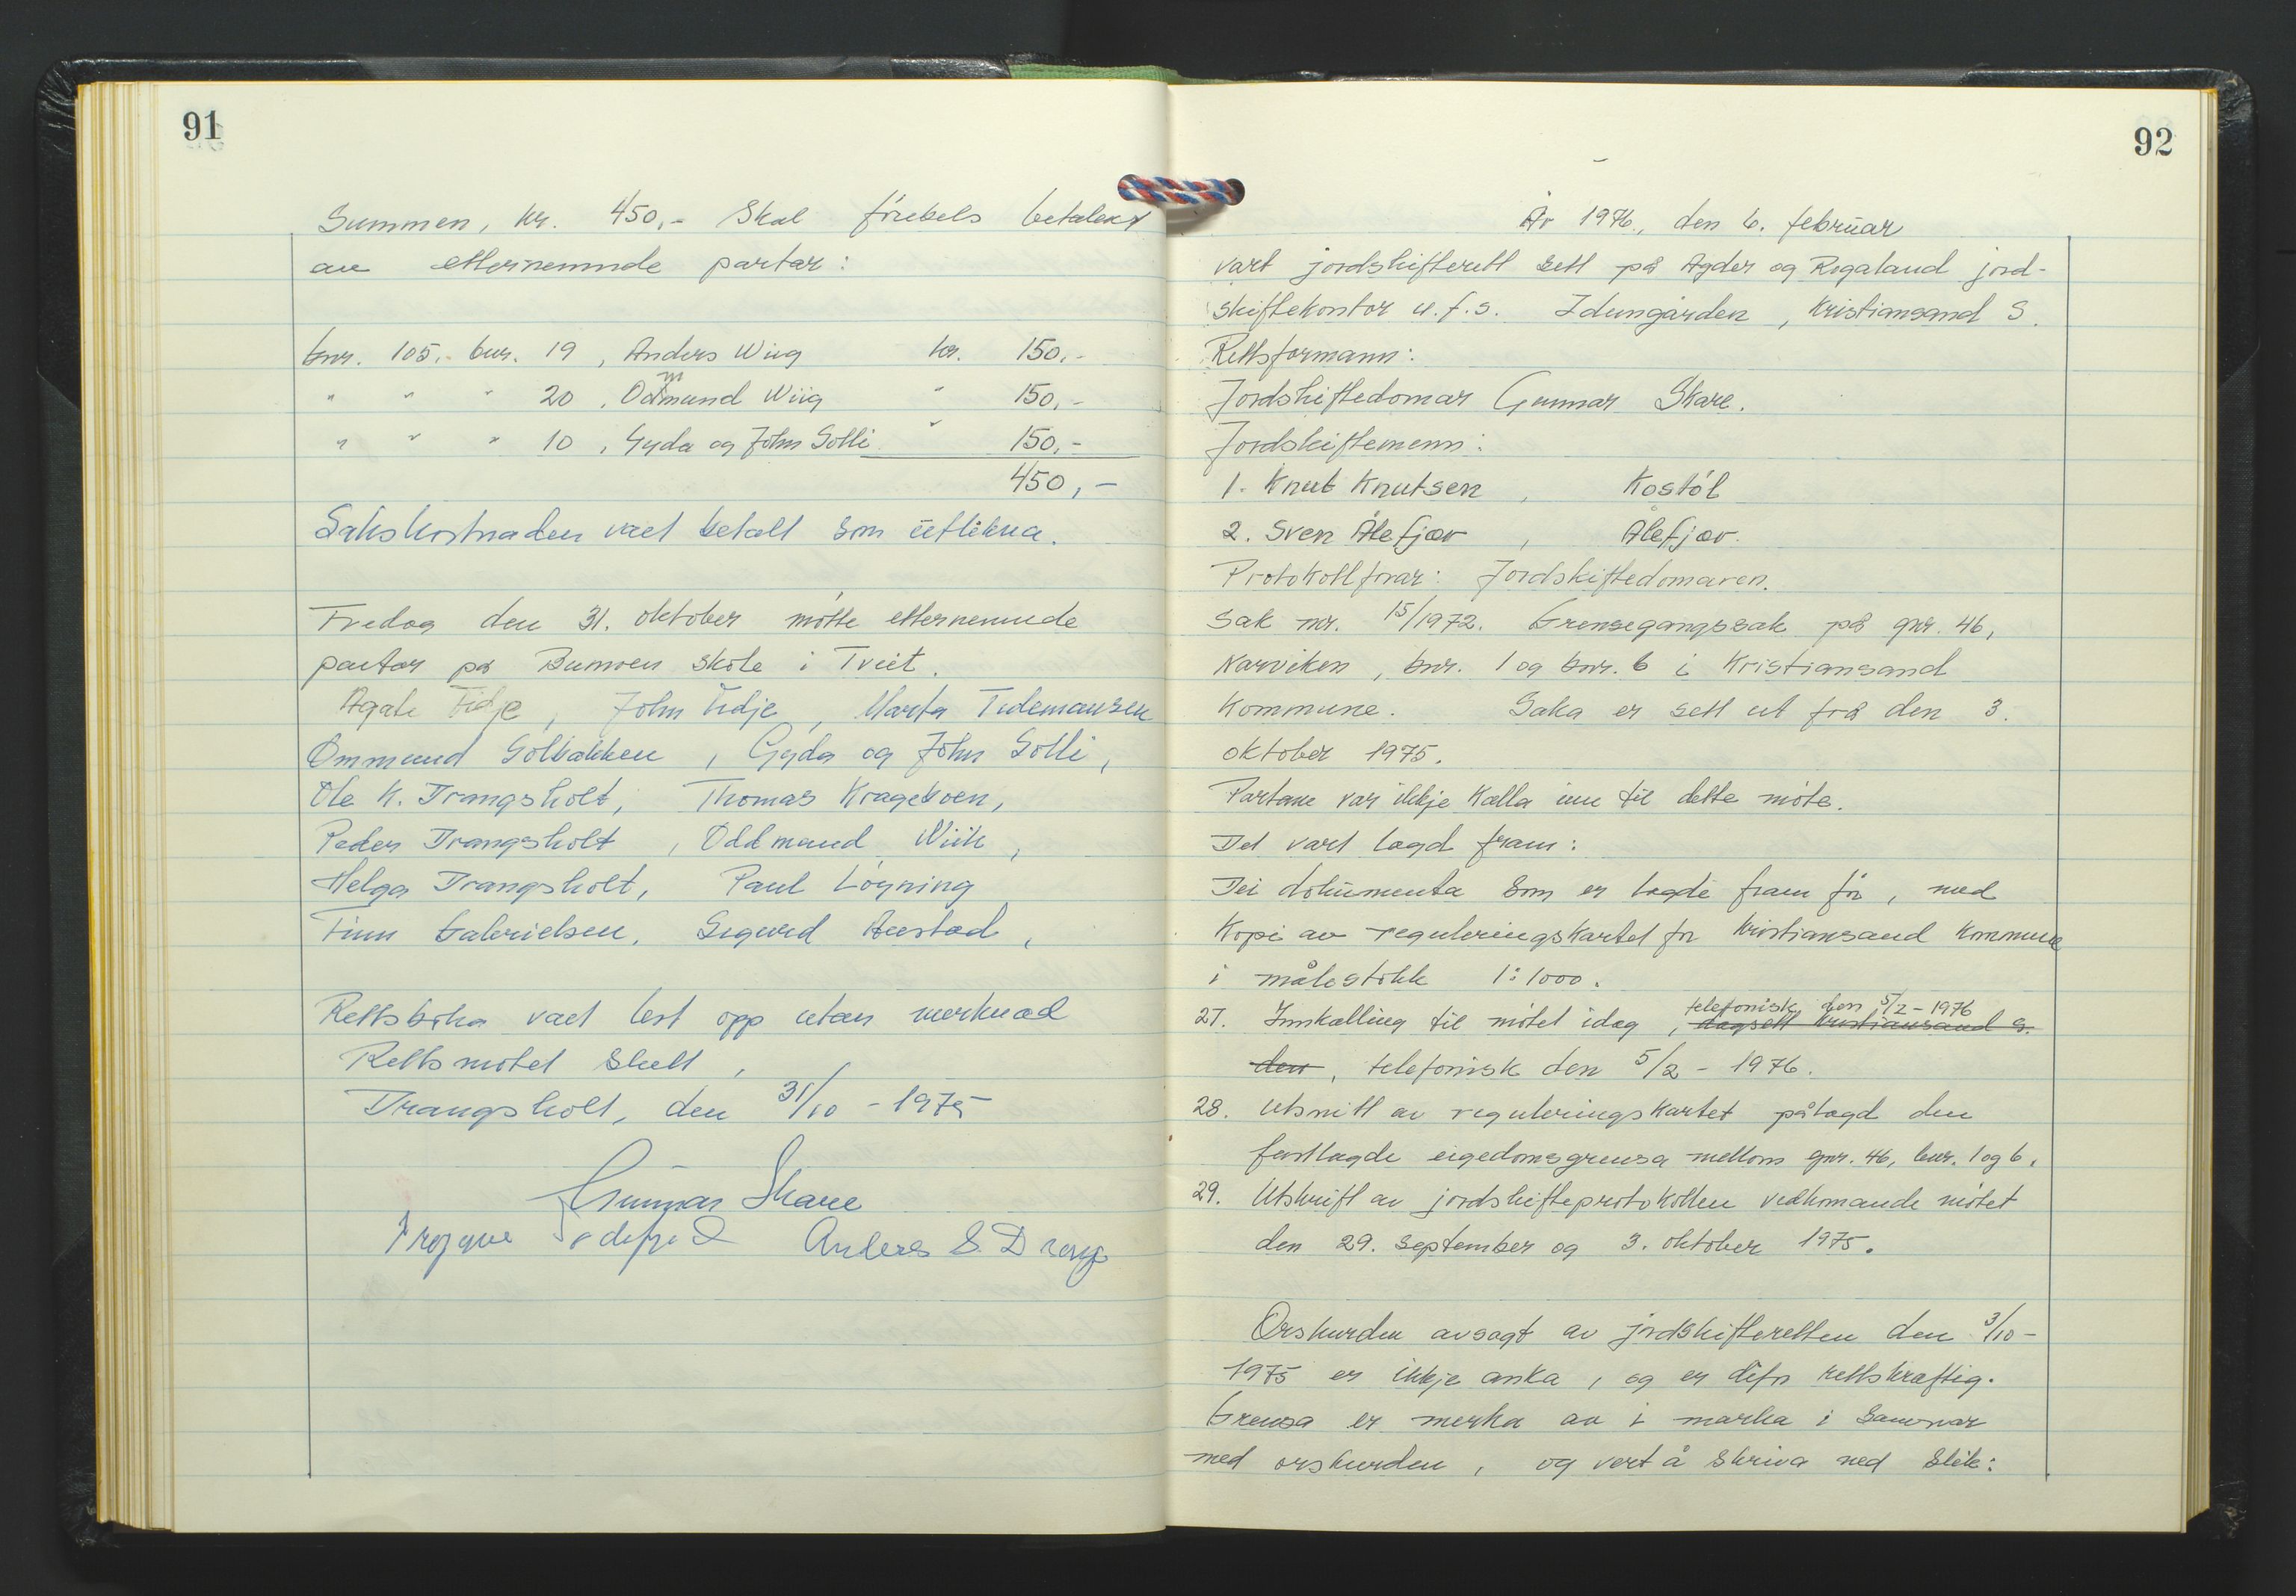 91
Summen, kr. 450,- skal førebels betalast
av etternemnde partar:
Gnr. 105, bnr. 19, Anders Wiig kr. 150,-
" " " 20, Odmund Wiig " 150,-
" " " 10, Gyda og John Solli " 150,-
450,-
Sakskostnaden vart betalt som utlikna.
Fredag den 31. oktober møtte etternemnde
partar på Bumoen skole i Tveit.
Agate Tidje, John Tidje, Marta Tedemansen
Ommund Solbakken, Gyda og John Solli,
Ole K. Drangsholt, Thomas Krageboen,
Peder Drangsholt, Oddmund Wiik,
Helga Drangsholt, Paul Løgning
Finn Gabrielsen, Sigurd Aastad,
Rettsboka vart lest opp utan merknad
Rettsmøtet slutt,
Drangsholt, den 31/10 - 1975
Gunnar Skare
Anders S. Drange
92
År 1976, den 6. februar
vart jordskifterett sett på Agder og Rogaland jord-
skiftekontor u.f.s. Idungården, Kristiansand S.
Rettsformann:
Jordskiftedomar Gunnar Skare.
Jordskiftemenn:
1. Knut Knutsen, Kostøl
2. Sven Ålefjær, Ålefjær.
Protokollførar: Jordskiftedomaren.
Sak nr. 15/1972. Grensegangssak på gnr. 46,
Narviken, bnr. 1 og bnr. 6 i Kristiansand
Kommune. Saka er sett ut frå den 3.
oktober 1975.
Partane var ikkje kalla inn til dette møte.
Det vart lagd fram:
Dei dokumenta som er lagde fram før, med
Kopi av reguleringskartet for Kristiansand Kommune
i målestokk 1:1000.
telefonisk den 5/2 - 1976
27. Innkalling til møtet idag, dagsett Kristiansand S.
den, telefonisk den 5/2 - 1976.
28. Utsnitt av reguleringskartet pålagd den
fastlagde eigedomsgrensa mellom gnr. 46, bnr. 1 og 6.
29. Utskrift av jordskifteprotokollen vedkomande møtet
den 29. september og 3. oktober 1975.
Orskurden avsagt av jordskifteretten den 3/10 -
1975 er ikkje anka, og er difor rettskraftig.
Grensa er merka av i marka i samsvar
med orskurden, og vert å skriva ned slik: